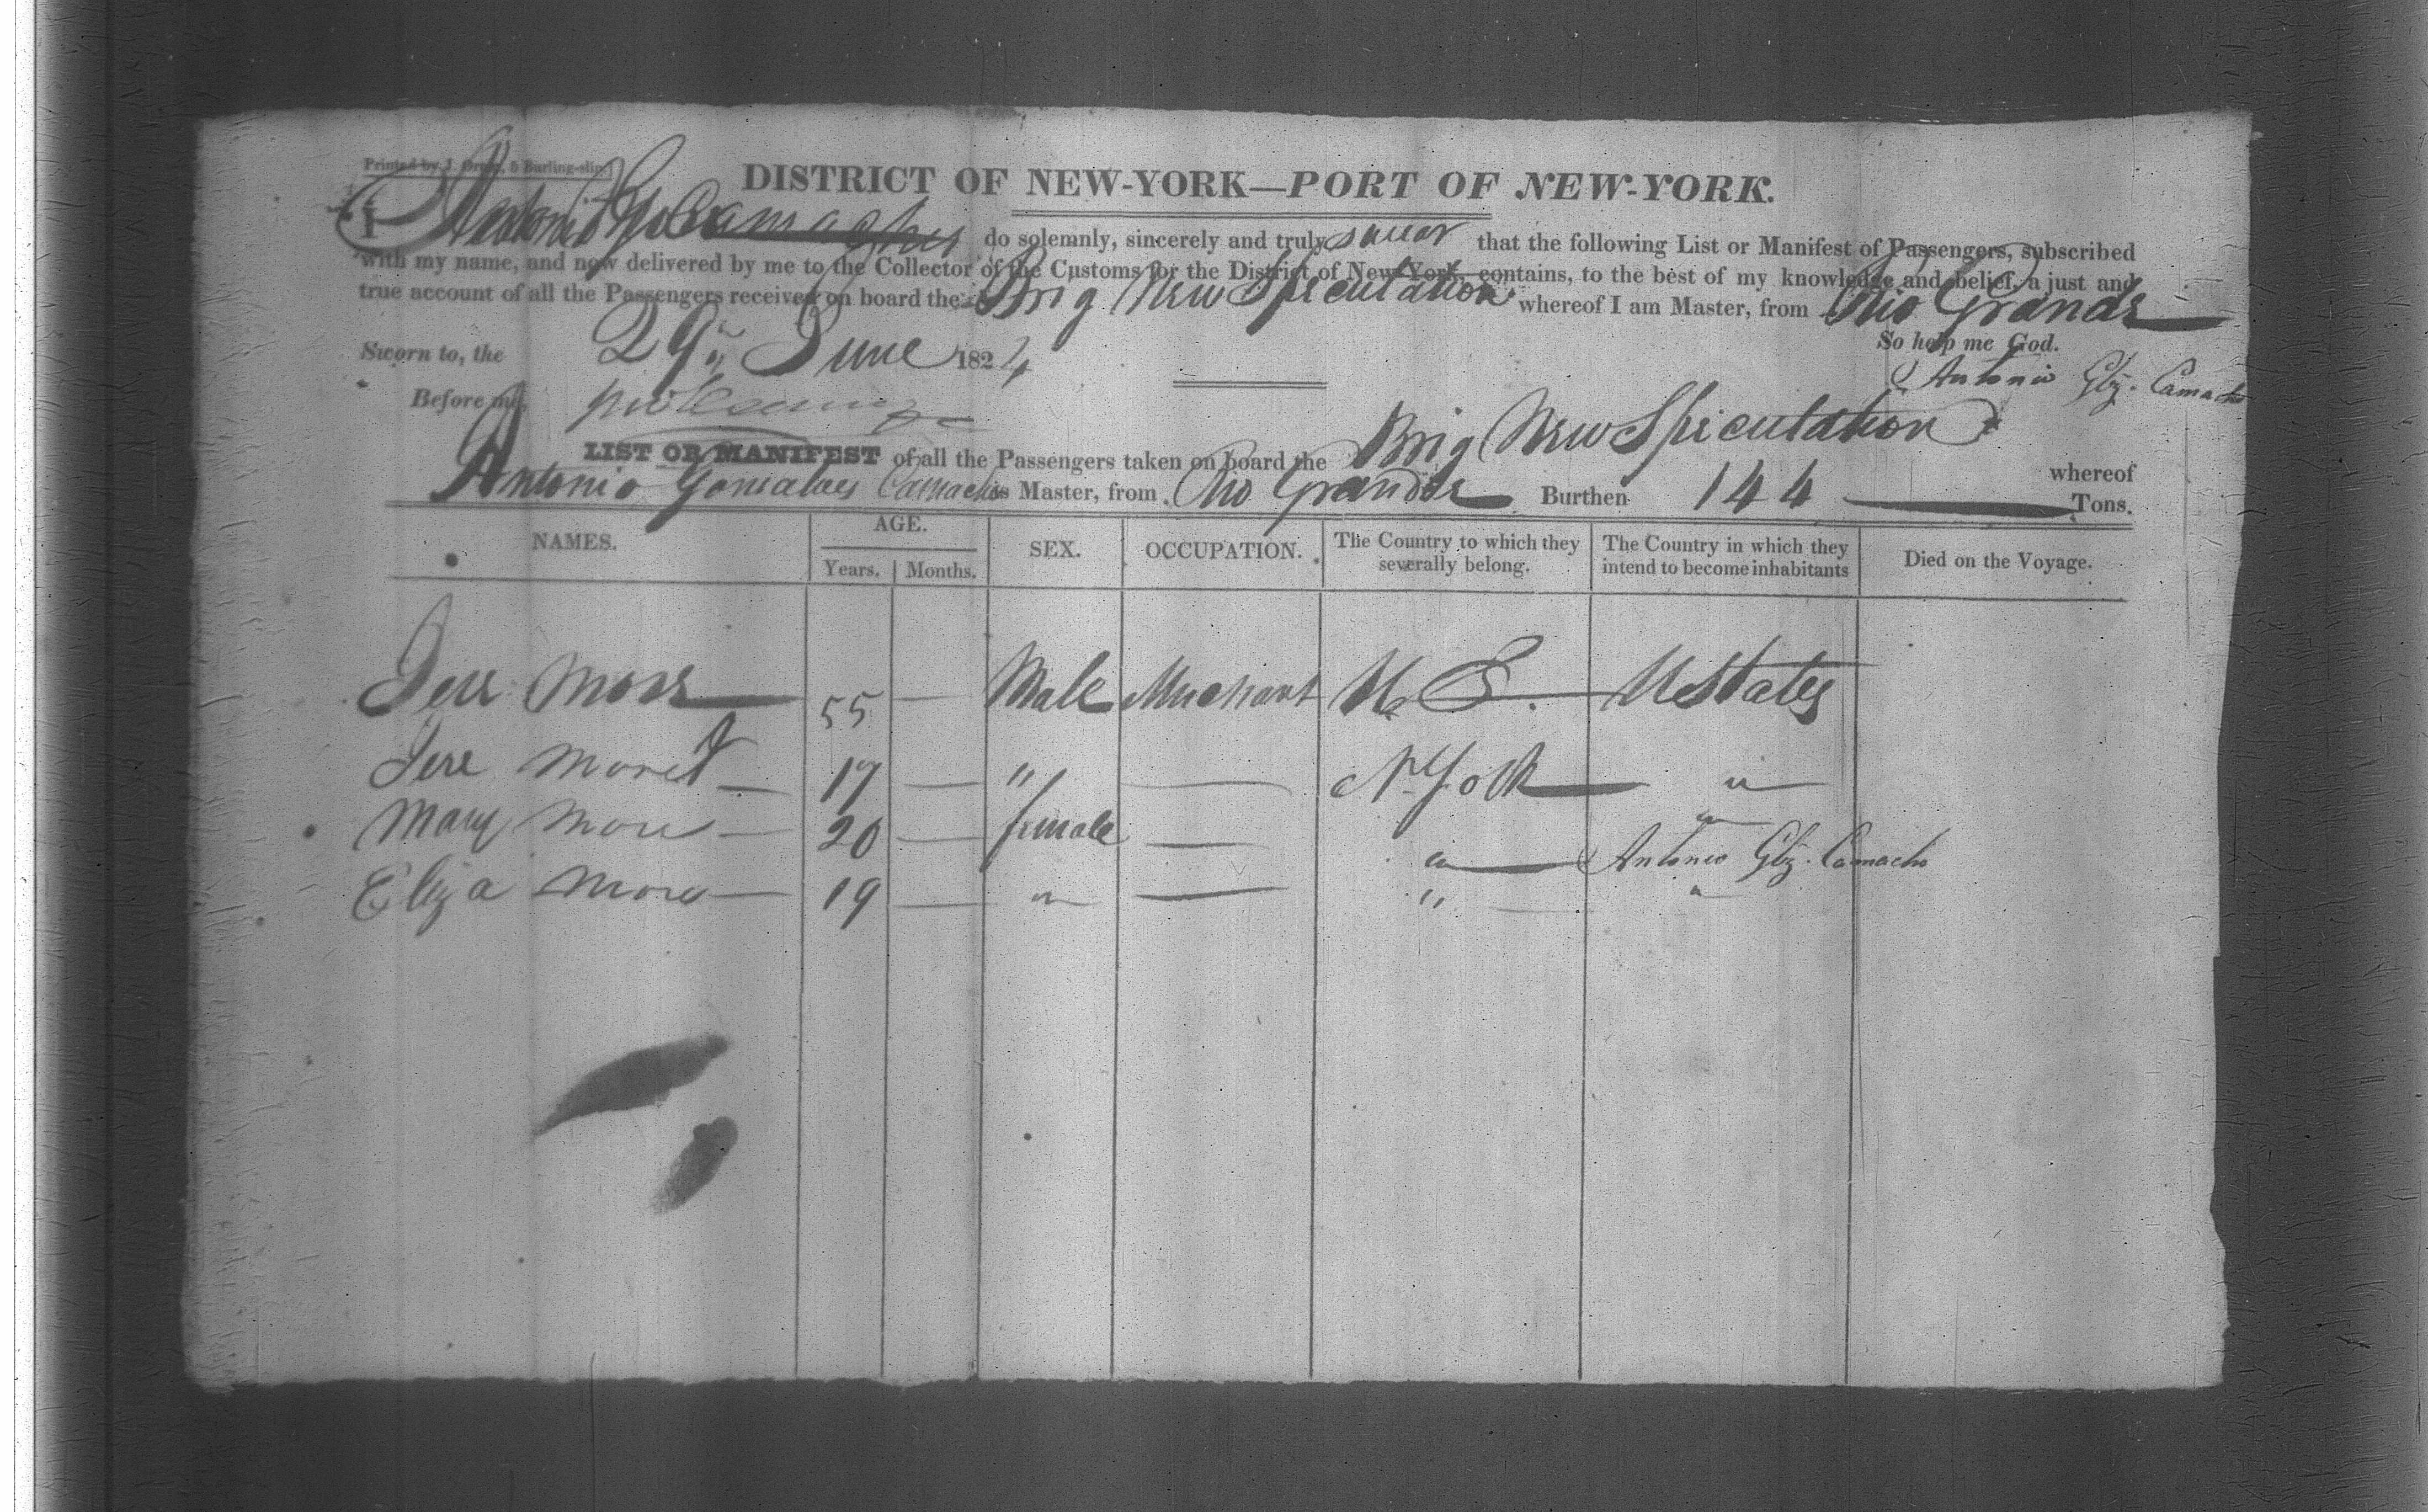 Printed by J. Oram, 5 Burling-slip.
DISTRICT OF NEW-YORK—PORT OF NEW-YORK.
I Antonio Camaghes do solemnly, sincerely and truly swear that the following List or Manifest of Passengers, subscribed
with my name, and now delivered by me to the Collector of the Customs for the District of New-York, contains, to the best of my knowledge and belief, a just and
true account of all the Passengers received on board the Brig New Speculation whereof I am Master, from Rio Grande
So help me God.
Sworn to, the 29th June 1824
Antonio Glz. Camacho
Before me,
LIST OR MANIFEST of all the Passengers taken on board the Brig New Speculation whereof
Antonio Gonsalves Camacho is Master, from Rio Grande Burthen 144 Tons.
NAMES. AGE. SEX. OCCUPATION. The Country to which they severally belong. The Country in which they intend to become inhabitants Died on the Voyage.
Years. Months.
Jere More 55 — Male Merchant U S. — U States
Jere More 17 — " — N. York — "
Mary More — 20 — female — " — "
Antonio Glz. Camacho
Eliza More — 19 — " — " — "